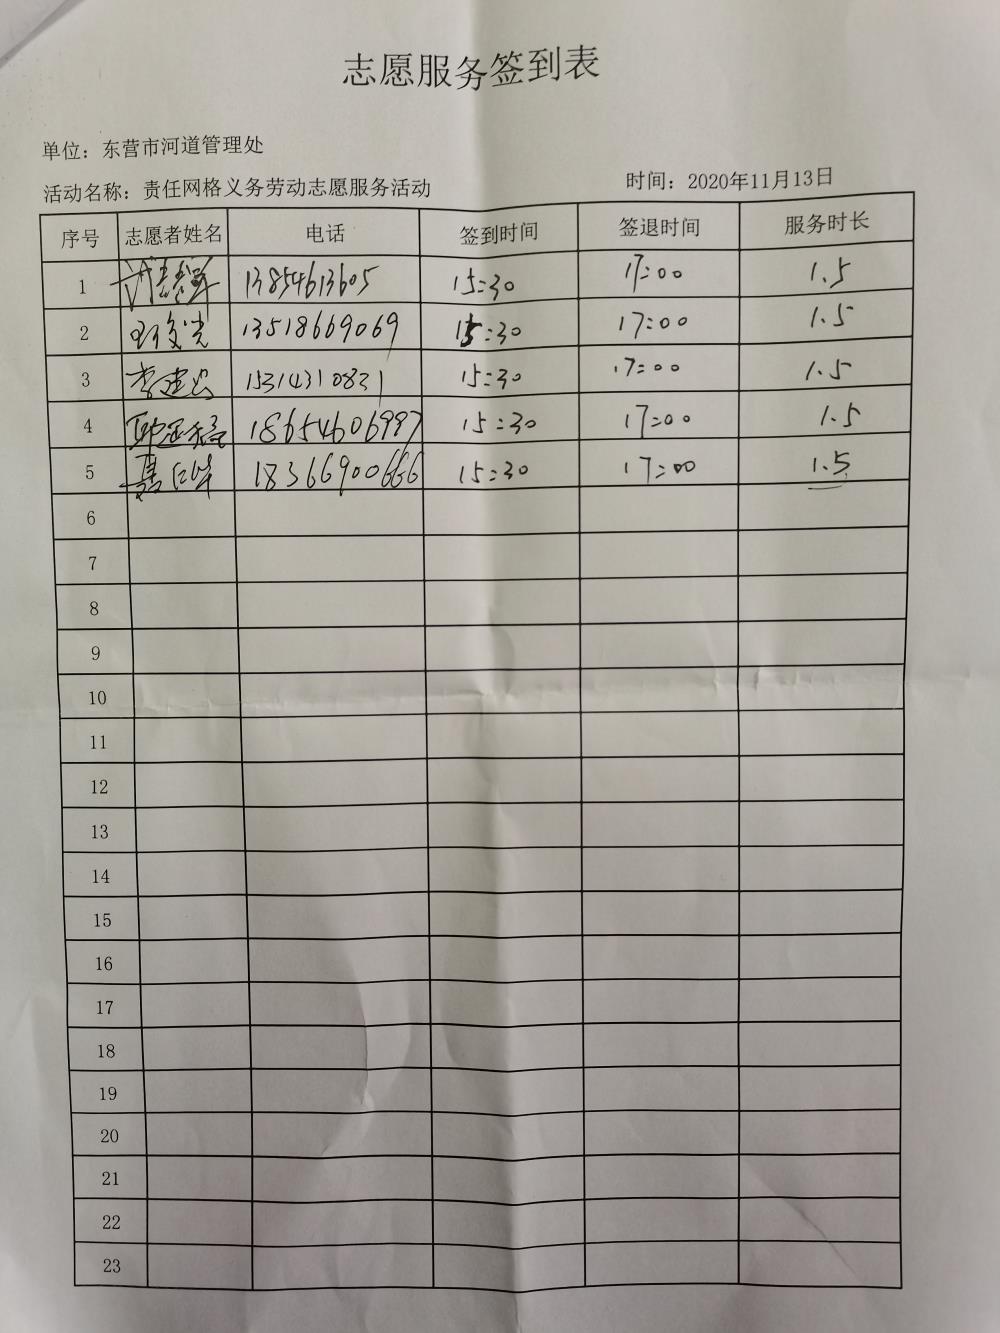 志愿服务签到表
单位：东营市河道管理处
活动名称：责任网格义务劳动志愿服务活动 时间：2020年11月13日
序号 志愿者姓名 电话 签到时间 签退时间 服务时长
1 13854613605 15:30 17:00 1.5
2 13518669069 15:30 17:00 1.5
3 李建民 15314310831 15:30 17:00 1.5
4 18654606997 15:30 17:00 1.5
5 18366900666 15:30 17:00 1.5
6
7
8
9
10
11
12
13
14
15
16
17
18
19
20
21
22
23